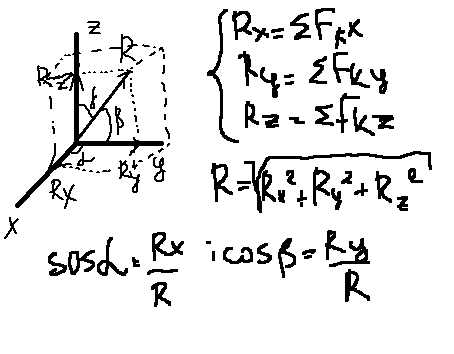 z
R
Rz
γ
β
α
Ry
y
Rx
x
Rx = ΣFkx
Ry = ΣFky
Rz = ΣFkz
R = √Rx² + Ry² + Rz²
sosα = Rx/R i cosβ = Ry/R